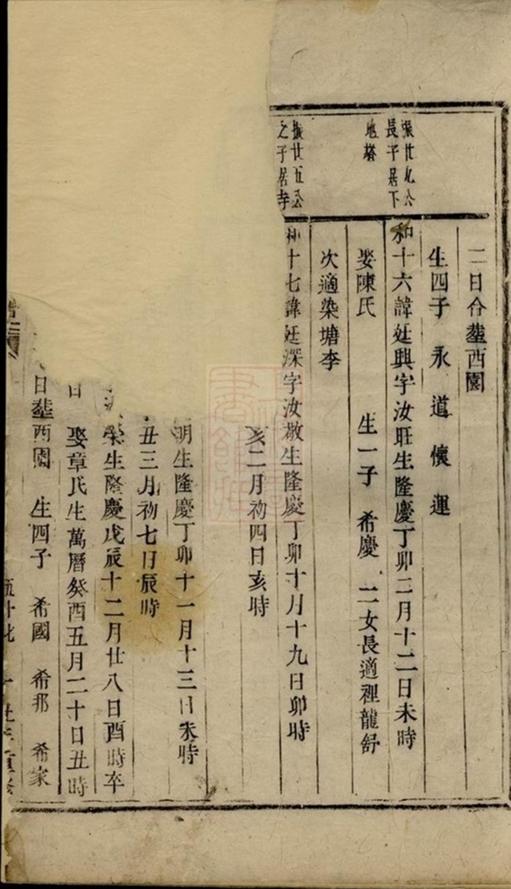 二日合塟西園
生四子 永 道 懷 運
振廿九公
長子居下
地塔
和十六諱廷興字汝旺生隆慶丁卯二月十二日未時
娶陳氏 生一子 希慶 二女長適裡龍舒
次適染塘李
振廿五公
之子居寺
和十七諱廷深字汝敬生隆慶丁卯十月十九日卯時
亥二月初四日亥時
明生隆慶丁卯十一月十三日未時
丑三月初七日辰時
榮生隆慶戊辰十二月廿八日酉時卒
娶章氏生萬曆癸酉五月二十日丑時
日塟西園 生四子 希國 希邦 希家